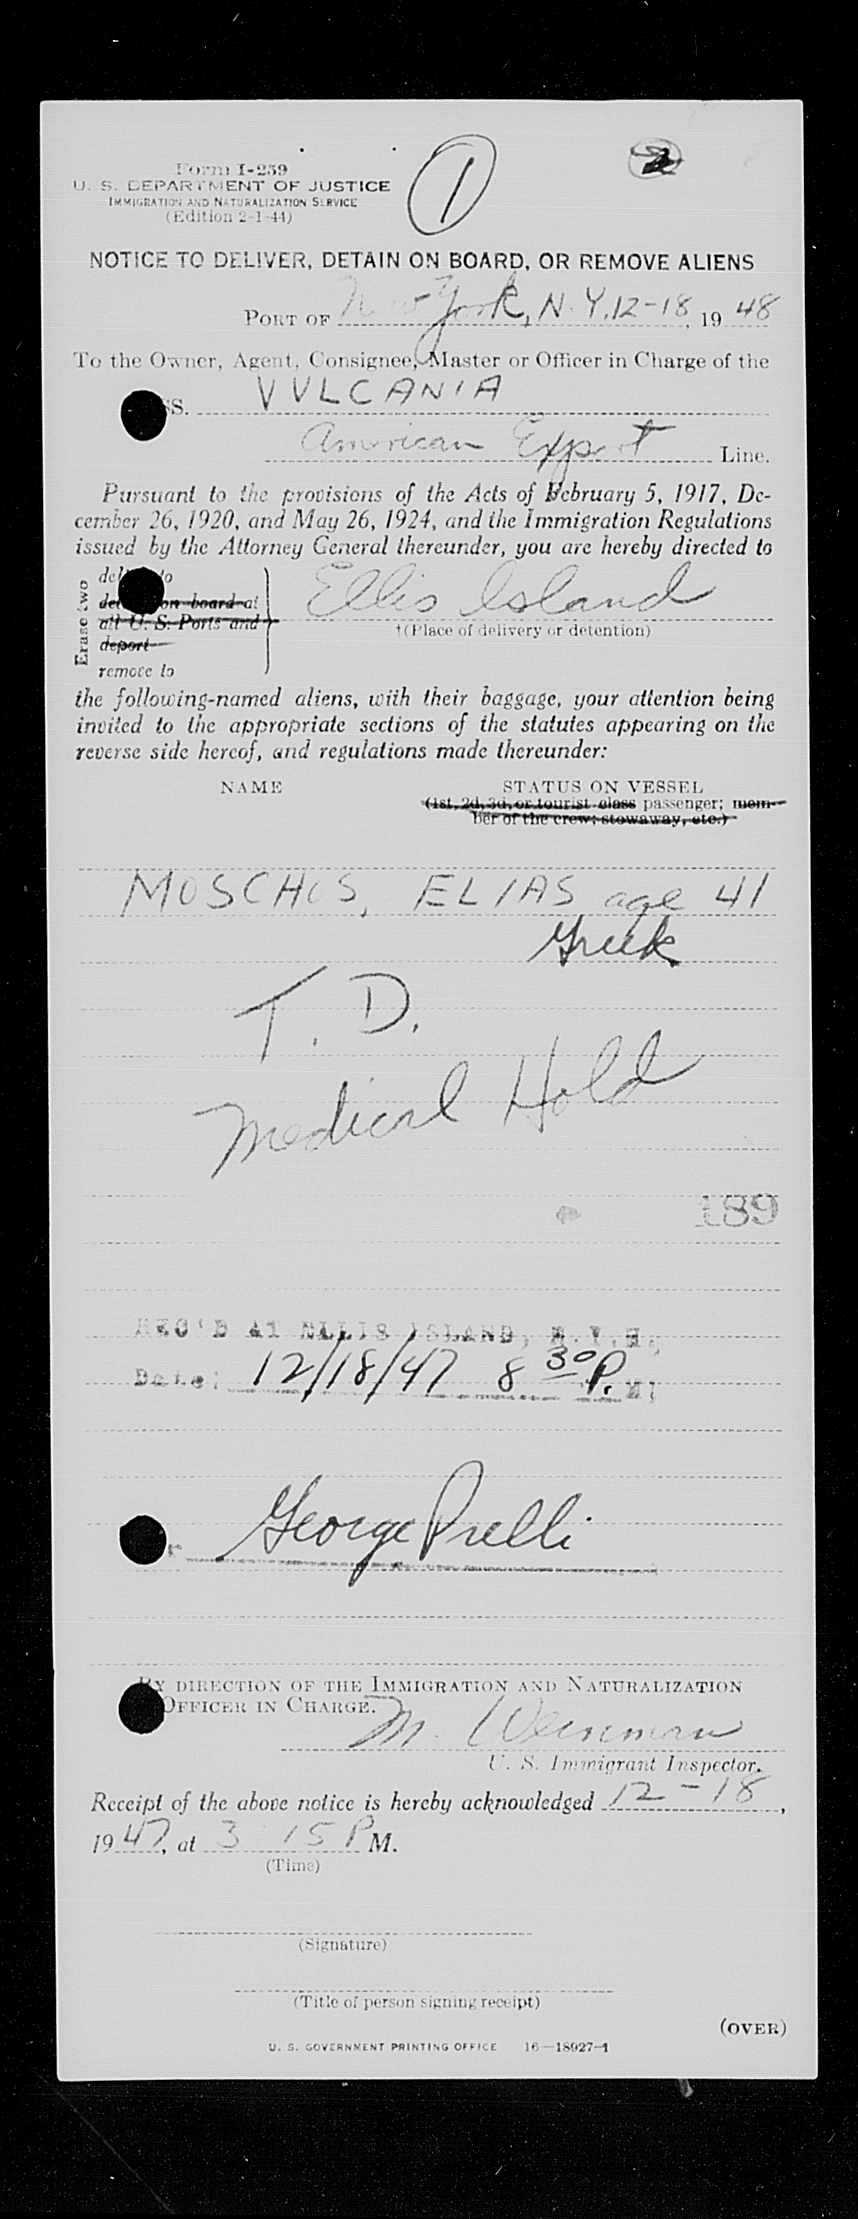 Form I-259
U. S. DEPARTMENT OF JUSTICE
IMMIGRATION AND NATURALIZATION SERVICE
(Edition 2-1-44)
1
2
NOTICE TO DELIVER, DETAIN ON BOARD, OR REMOVE ALIENS
PORT OF New York, N.Y. 12-18, 19 48
To the Owner, Agent, Consignee, Master or Officer in Charge of the
SS. VULCANIA
American Export Line.
Pursuant to the provisions of the Acts of February 5, 1917, De-
cember 26, 1920, and May 26, 1924, and the Immigration Regulations
issued by the Attorney General thereunder, you are hereby directed to
Erase two
to
on board at
all U. S. Ports and
deport
remove to
Ellis Island
†(Place of delivery or detention)
the following-named aliens, with their baggage, your attention being
invited to the appropriate sections of the statutes appearing on the
reverse side hereof, and regulations made thereunder:
NAME STATUS ON VESSEL
(1st, 2d, 3d, or tourist class passenger; mem-
ber of the crew; stowaway, etc.)
MOSCHOS, ELIAS age 41
Greek
T. D.
Medical Hold
189
REC'D AT ELLIS ISLAND, N.Y.H.
Date: 12/18/47 8 30 P. M;
George Prelli
BY DIRECTION OF THE IMMIGRATION AND NATURALIZATION
OFFICER IN CHARGE.
M. Weinman
U. S. Immigrant Inspector.
Receipt of the above notice is hereby acknowledged 12-18,
1947, at 3 15 P M.
(Time)
(Signature)
(Title of person signing receipt)
(OVER)
U. S. GOVERNMENT PRINTING OFFICE 16—18927-1